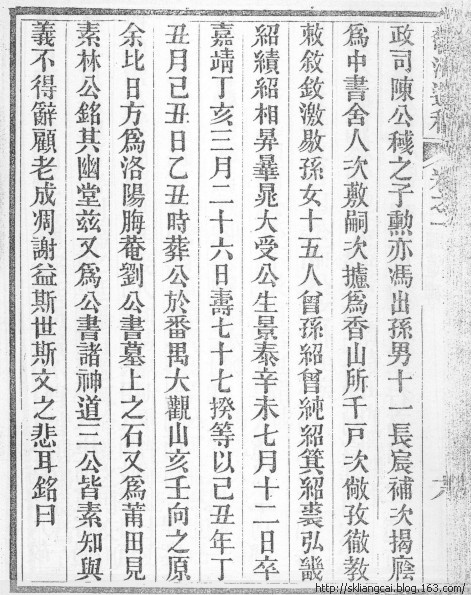 政司陳公穢之子勳亦馮出孫男十一長宸補次揭廕
爲中書舍人次敷嗣次攄爲香山所千戸次儆孜徹教
敕敘敜激敭孫女十五人曾孫紹曾純紹箕紹裘弘畿
紹績紹相昇畢晁大受公生景泰辛未七月十二日卒
嘉靖丁亥三月二十六日壽七十七揆等以己丑年丁
丑月己丑日乙丑時葬公於番禺大觀山亥壬向之原
余比日方爲洛陽晦菴劉公書墓上之石又爲莆田見
素林公銘其幽堂茲又爲公書諸神道三公皆素知與
義不得辭顧老成凋謝益斯世斯文之悲耳銘曰
http://skliangcai.blog.163.com/